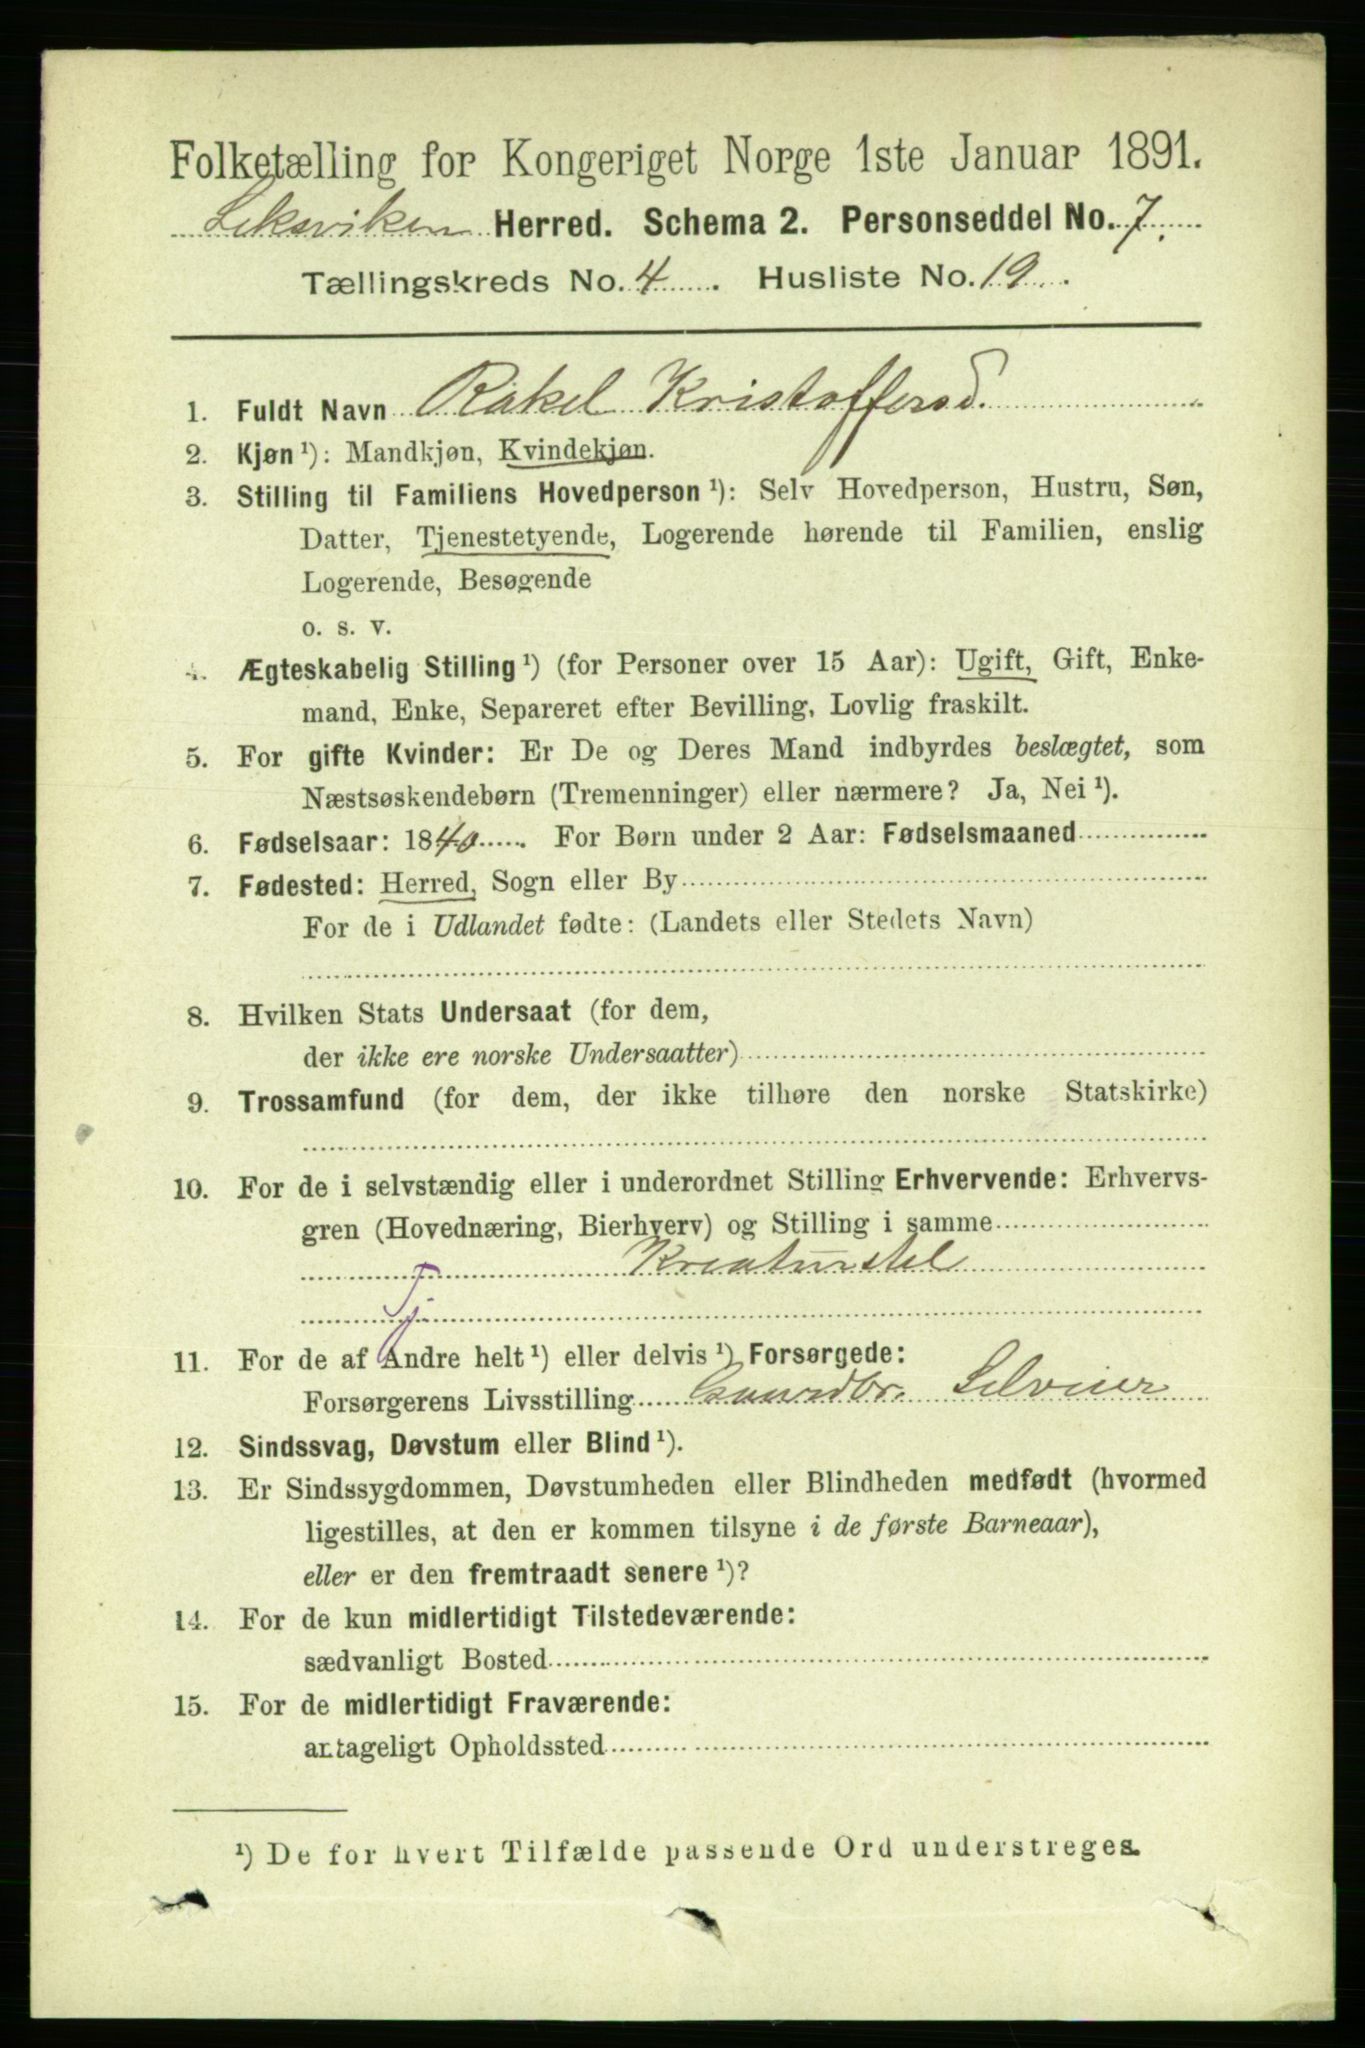 Folketælling for Kongeriget Norge 1ste Januar 1891.
Leksviken Herred. Schema 2. Personseddel No. 7.
Tællingskreds No. 4. Husliste No. 19.
1. Fuldt Navn Rakel Kristoffersd.
2. Kjøn ¹): Mandkjøn, Kvindekjøn.
3. Stilling til Familiens Hovedperson ¹): Selv Hovedperson, Hustru, Søn,
Datter, Tjenestetyende, Logerende hørende til Familien, enslig
Logerende, Besøgende
o. s. v.
4. Ægteskabelig Stilling ¹) (for Personer over 15 Aar): Ugift, Gift, Enke-
mand, Enke, Separeret efter Bevilling, Lovlig fraskilt.
5. For gifte Kvinder: Er De og Deres Mand indbyrdes beslægtet, som
Næstsøskendebørn (Tremenninger) eller nærmere? Ja, Nei ¹).
6. Fødselsaar: 1840. For Børn under 2 Aar: Fødselsmaaned
7. Fødested: Herred, Sogn eller By
For de i Udlandet fødte: (Landets eller Stedets Navn)
8. Hvilken Stats Undersaat (for dem,
der ikke ere norske Undersaatter)
9. Trossamfund (for dem, der ikke tilhøre den norske Statskirke)
10. For de i selvstændig eller i underordnet Stilling Erhvervende: Erhvervs-
gren (Hovednæring, Bierhverv) og Stilling i samme
Kreaturstel
Tj
11. For de af Andre helt ¹) eller delvis ¹) Forsørgede:
Forsørgerens Livsstilling Gaardbr. Selveier
12. Sindssvag, Døvstum eller Blind ¹).
13. Er Sindssygdommen, Døvstumheden eller Blindheden medfødt (hvormed
ligestilles, at den er kommen tilsyne i de første Barneaar),
eller er den fremtraadt senere ¹)?
14. For de kun midlertidigt Tilstedeværende:
sædvanligt Bosted
15. For de midlertidigt Fraværende:
antageligt Opholdssted
¹) De for hvert Tilfælde passende Ord understreges.